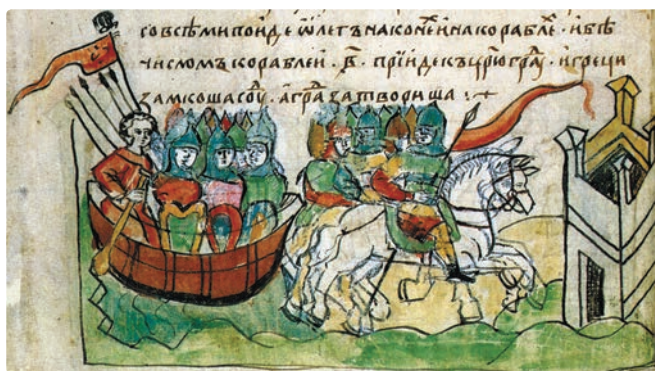 со всѣми поиде ѡлегъ на конеⷯ и на кораблеⷯ . и бѣ
числомъ кораблеи . в҃ . прїиде къ цр҃ю граⷣ . и греци
замкоша соуⷣ . а граⷣ затвориша :+